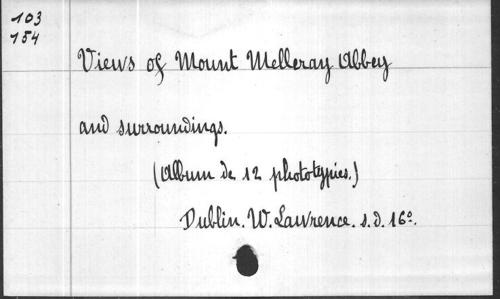 103
154
Views of Mount Melleray Abbey
and surroundings.
(Album de 12 phototypies.)
Dublin. W. Lawrence. s.d. 16º.